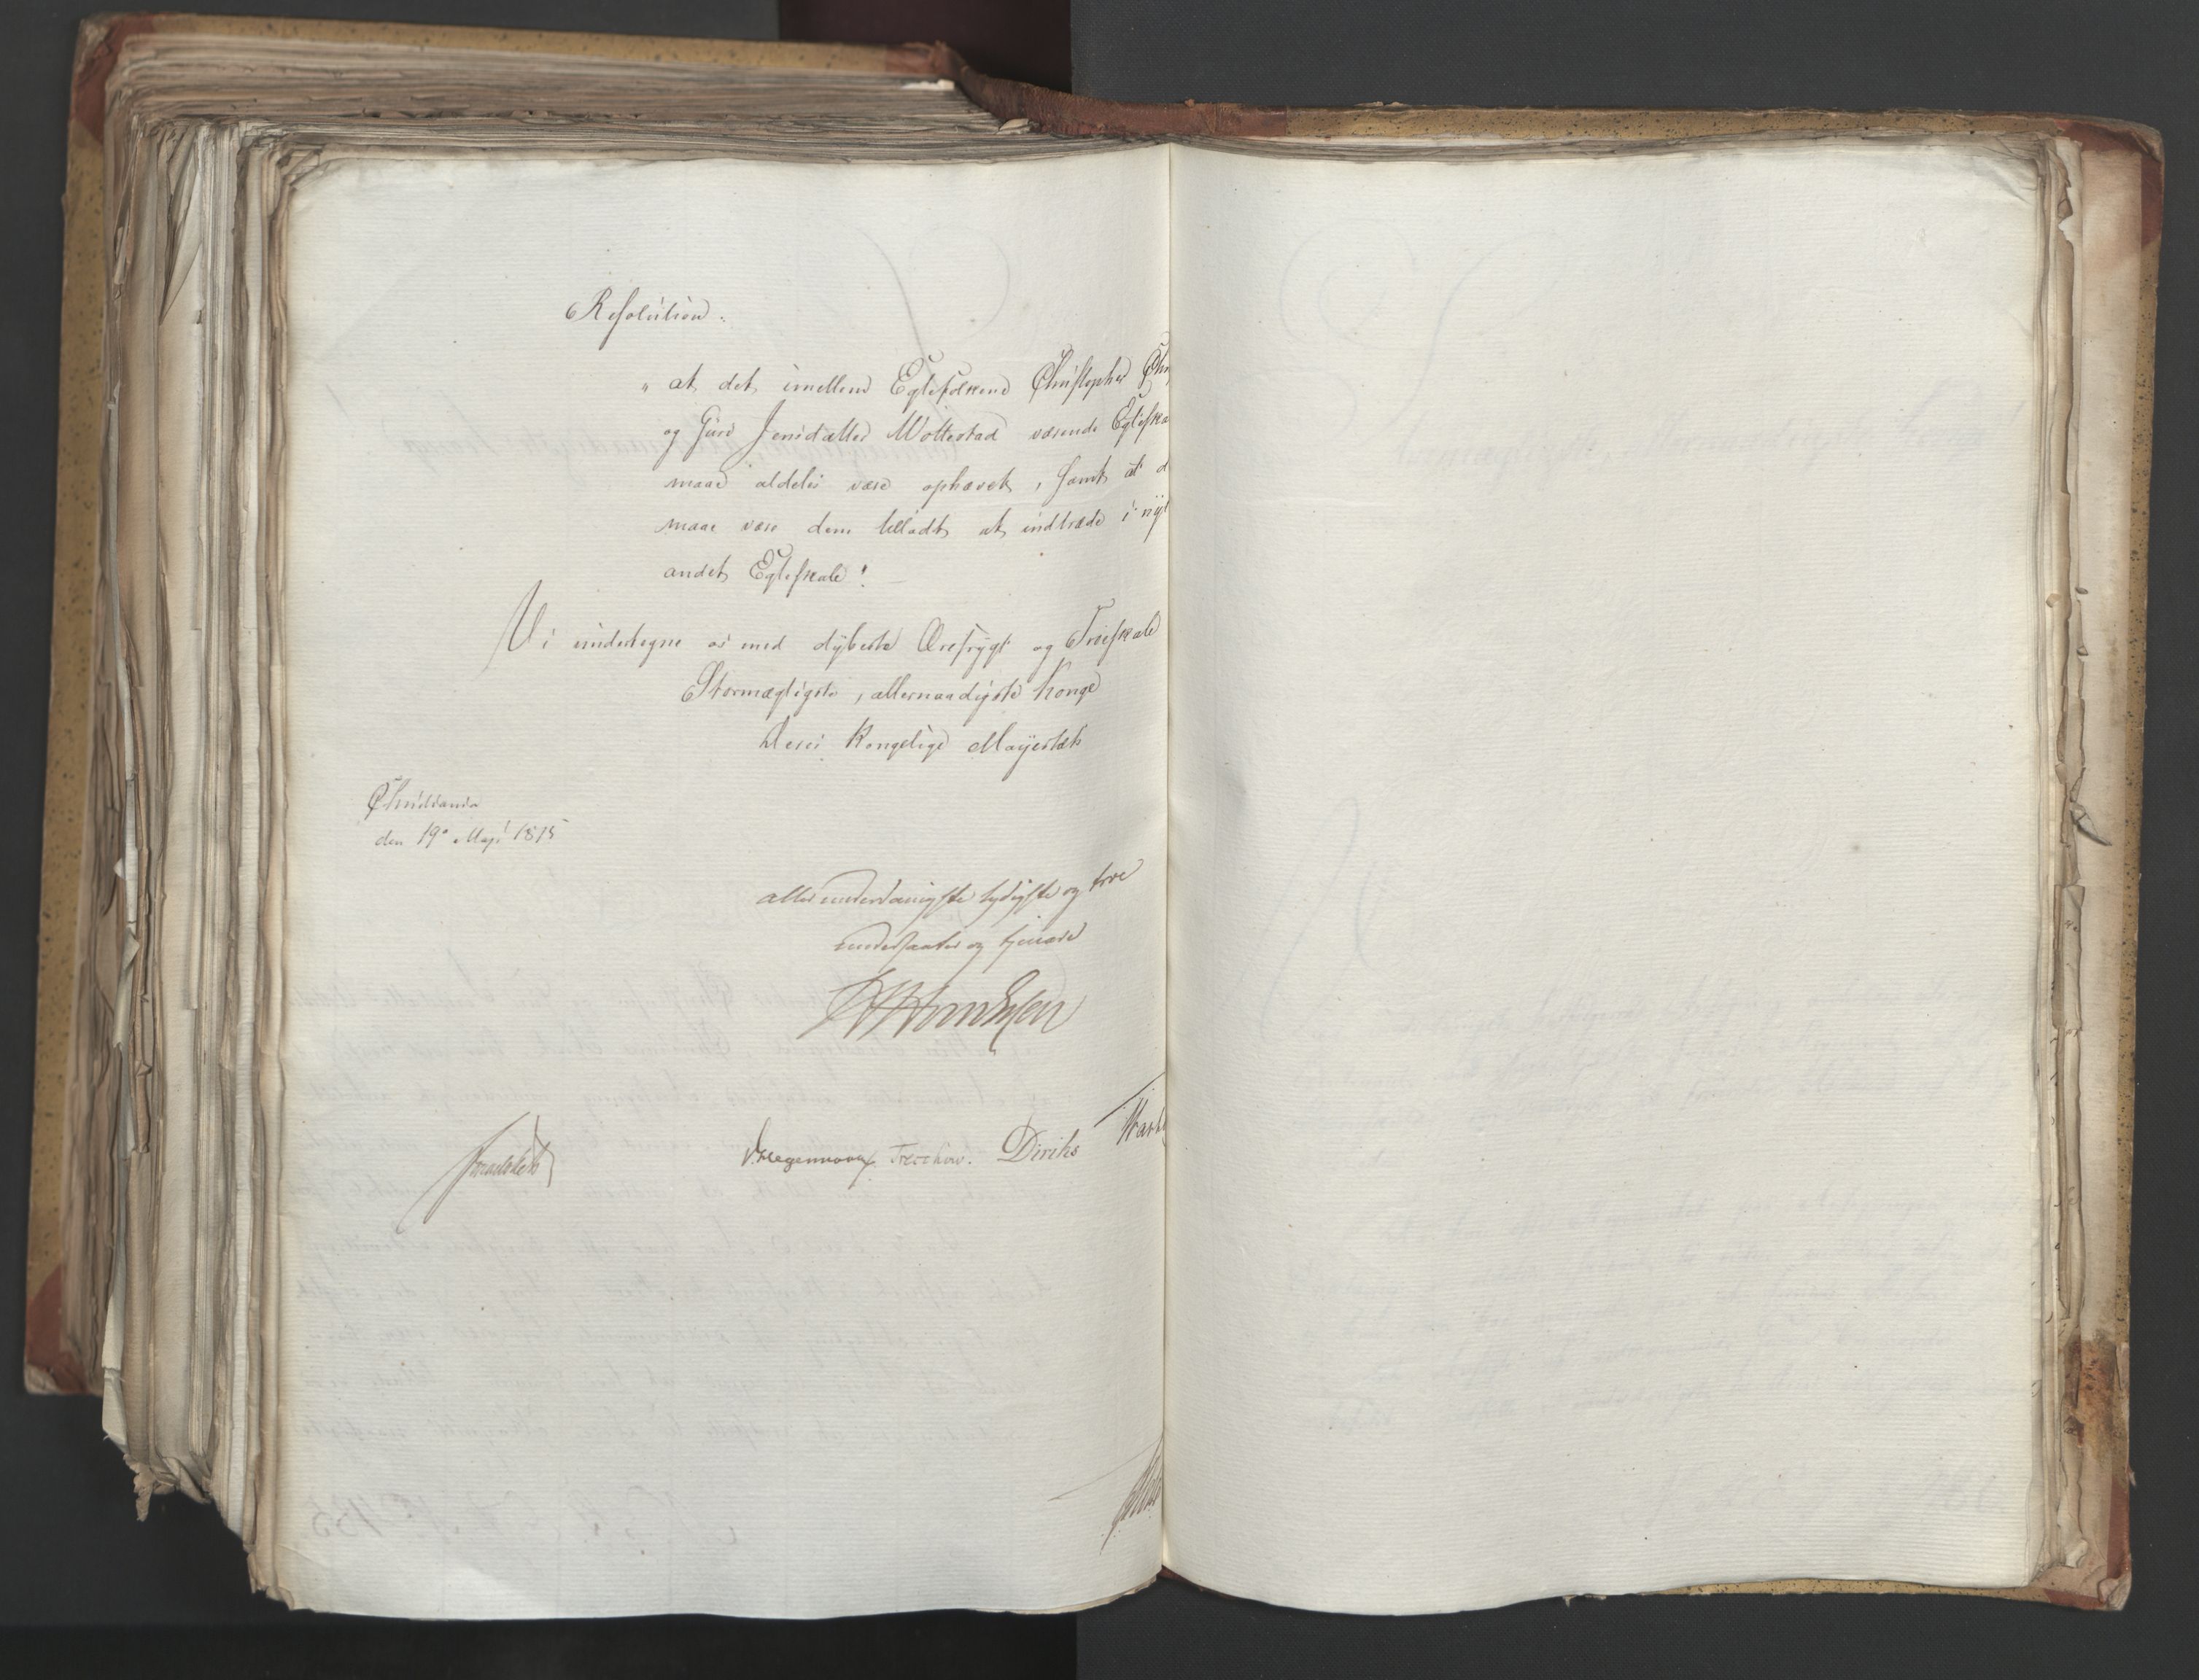 Resolution.
" at det imellem Egtefolkene Christopher Chri
og Guri Jensdatter Mollestad værende Egteska
maae aldeles være ophævet, samt at d
maae være dem tilladt at indtræde i nÿt
andet Egteskab!
Vi undertegne os med dÿbeste Ærefrÿgt og Troeskab
Stormægtigste, allernaadigste Konge
Deres Kongelige Mayestæts
Christiania
den 19de Maji 1815
allerunderdanigste lydigste og troe
undersaatter og tjenere
Thomessen
v: Krogh
Hegermann Treschow. Diriks